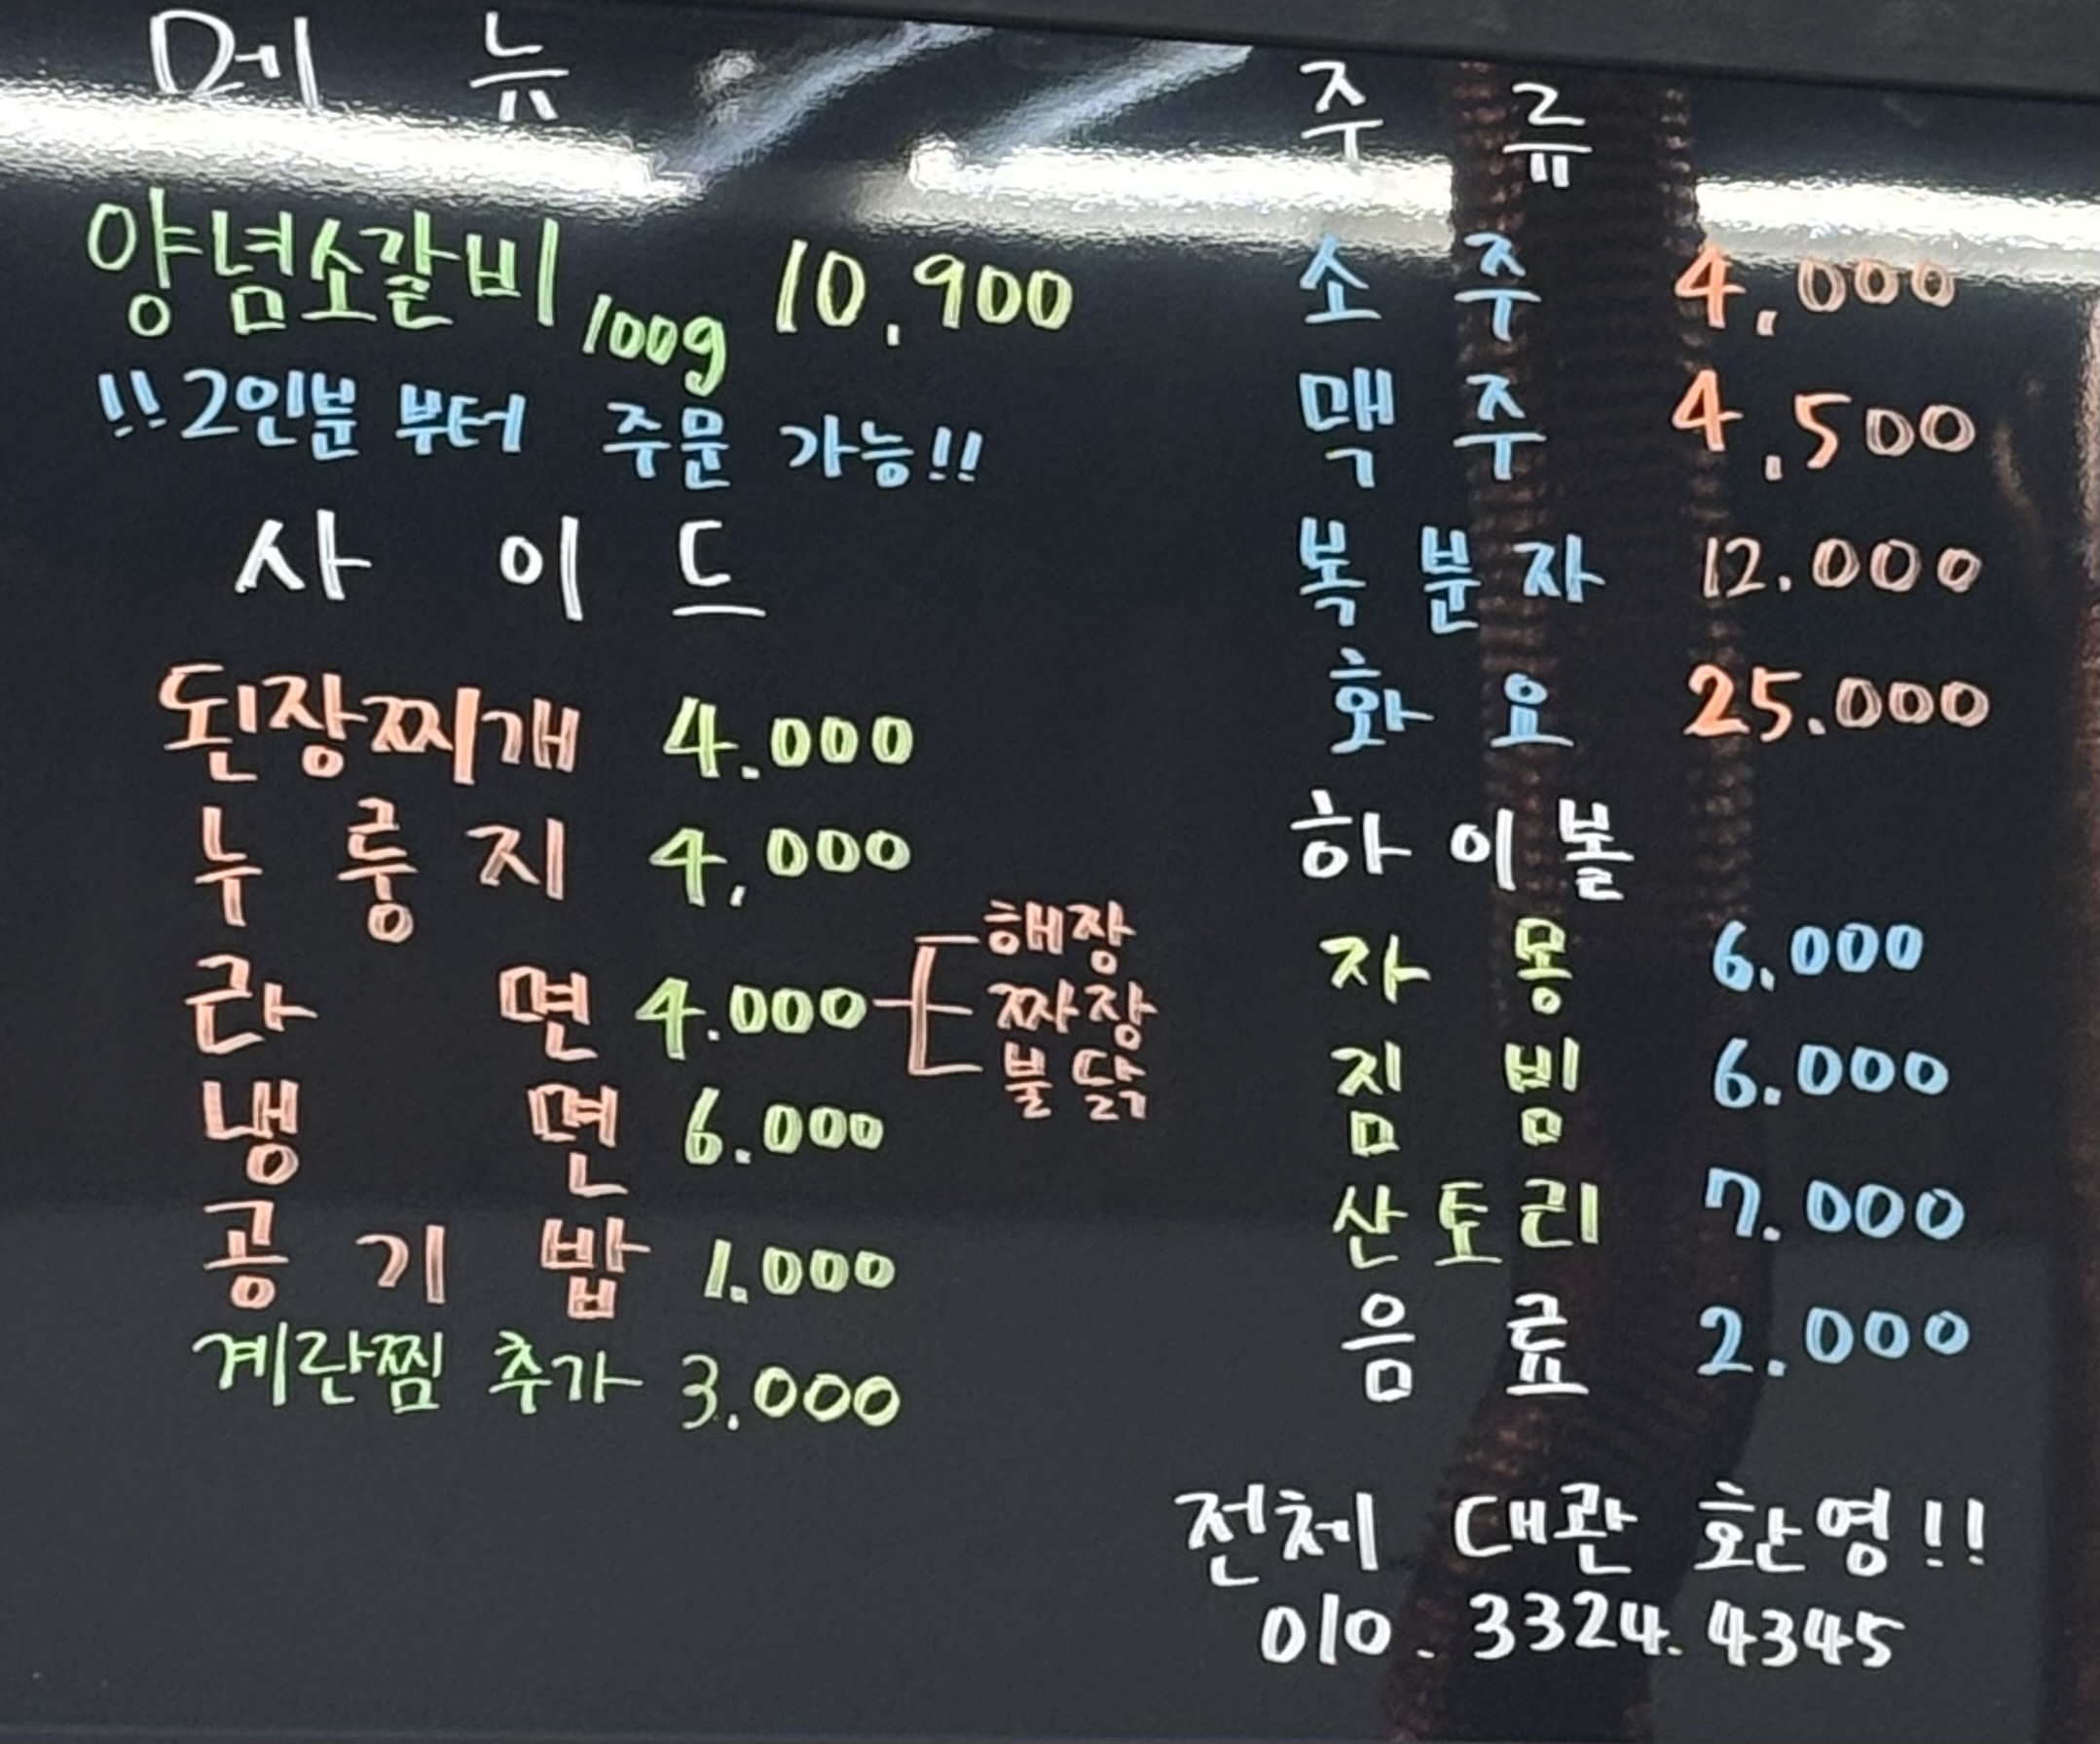 메뉴
양념소갈비 100g 10,900
!!2인분 부터 주문 가능!!
사이드
된장찌개 4.000
누룽지 4,000
라면 4.000
해장
짜장
불닭
냉면 6.000
공기밥 1.000
계란찜 추가 3.000
주류
소주 4,000
맥주 4,500
복분자 12.000
화요 25.000
하이볼
자몽 6.000
짐빔 6.000
산토리 7.000
음료 2.000
전체 대관 환영!!
010.3324.4345